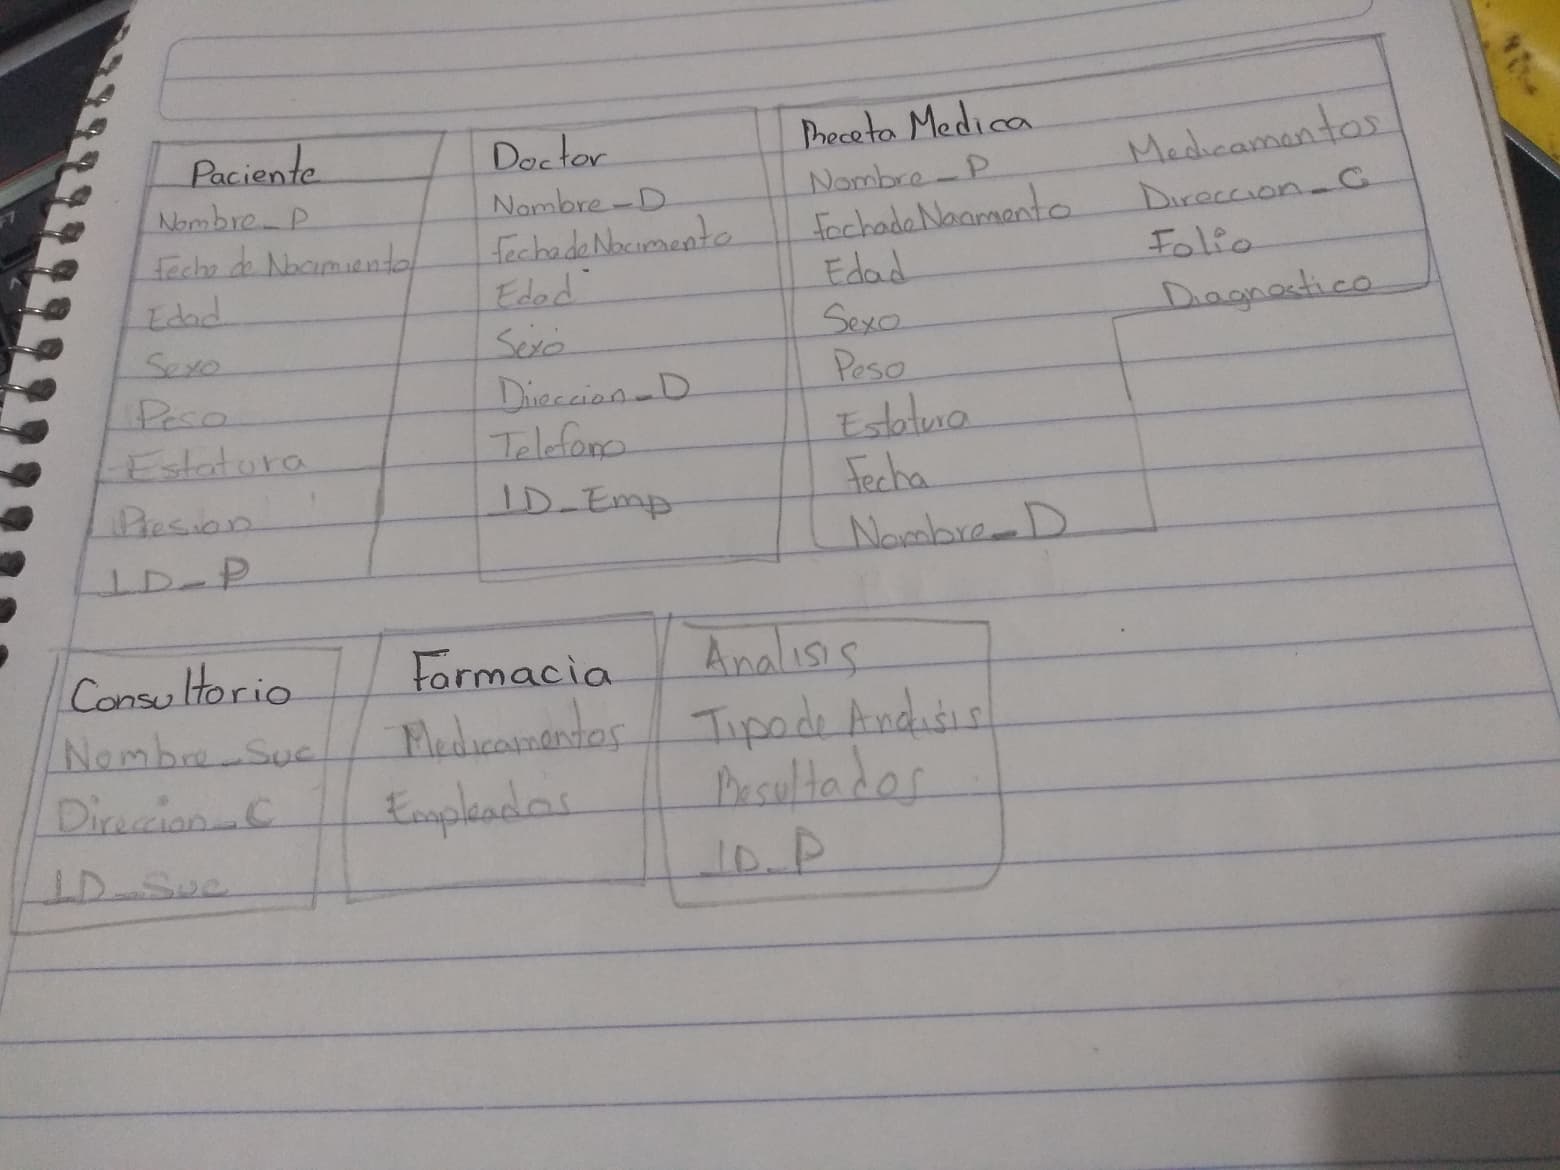 Paciente
Nombre_P
Fecha de Nacimiento
Edad
Sexo
Peso
Estatura
Presion
ID_P
Doctor
Nombre_D
FechadeNacimento
Edad
Sexo
Direccion_D
Telefono
ID_Emp
Receta Medica
Nombre_P
FechadeNacimento
Edad
Sexo
Peso
Estatura
Fecha
Nombre_D
Medicamentos
Direccion_C
Folio
Diagnostico
Consultorio
Nombre_Suc
Direccion_C
ID_Suc
Farmacia
Medicamentos
Empleados
Analisis
Tipo de Analisis
Resultados
ID_P